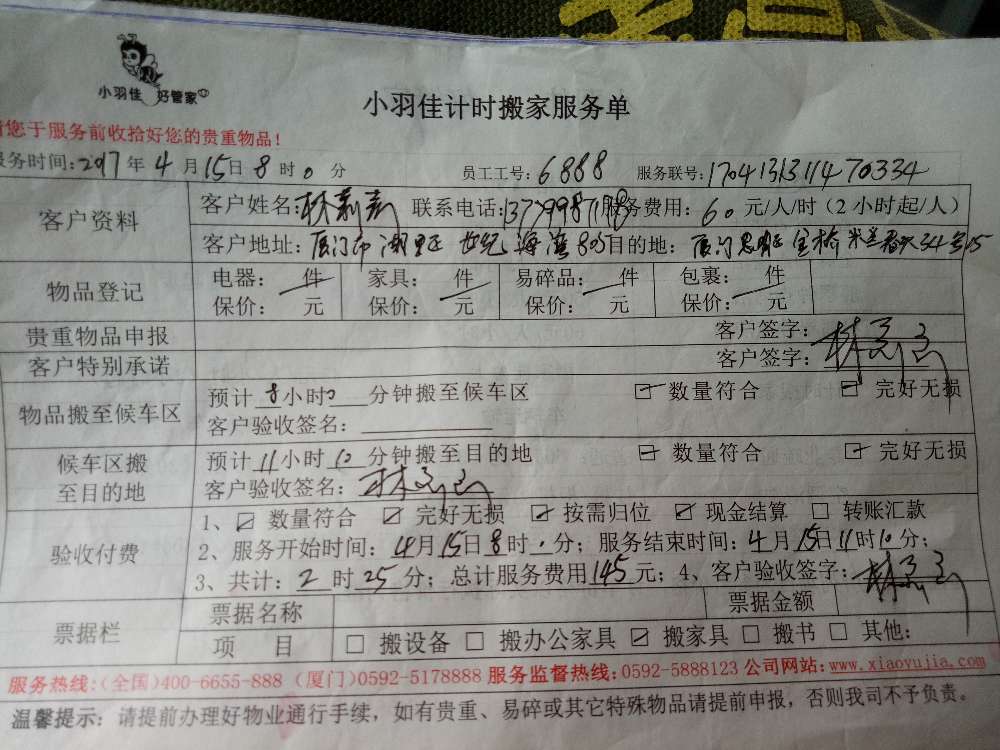 小羽佳 好管家
小羽佳计时搬家服务单
您于服务前收拾好您的贵重物品！
服务时间：2017年4月15日8时0分 员工工号：6888 服务联号：1704131311470334
客户资料 客户姓名： 联系电话： 服务费用：60元/人/时（2小时起/人）
客户地址：厦门市湖里区世纪海湾 目的地：厦门思明区
物品登记 电器：件 家具：件 易碎品：件 包裹：件
保价：元 保价：元 保价：元 保价：元
贵重物品申报 客户签字：
客户特别承诺 客户签字：
物品搬至候车区 预计8小时0分钟搬至候车区 ☑数量符合 ☑完好无损
客户验收签名：
候车区搬至目的地 预计11小时10分钟搬至目的地 ☑数量符合 ☑完好无损
客户验收签名：
验收付费 1、☑数量符合 ☑完好无损 ☑按需归位 ☑现金结算 □转账汇款
2、服务开始时间：4月15日8时0分；服务结束时间：4月15日11时10分；
3、共计：2时25分；总计服务费用145元；4、客户验收签字：
票据栏 票据名称 票据金额
项目 □搬设备 □搬办公家具 ☑搬家具 □搬书 □其他：
服务热线：（全国）400-6655-888（厦门）0592-5178888 服务监督热线：0592-5888123 公司网站：www.xiaoyujia.com
温馨提示：请提前办理好物业通行手续，如有贵重、易碎或其它特殊物品请提前申报，否则我司不予负责。